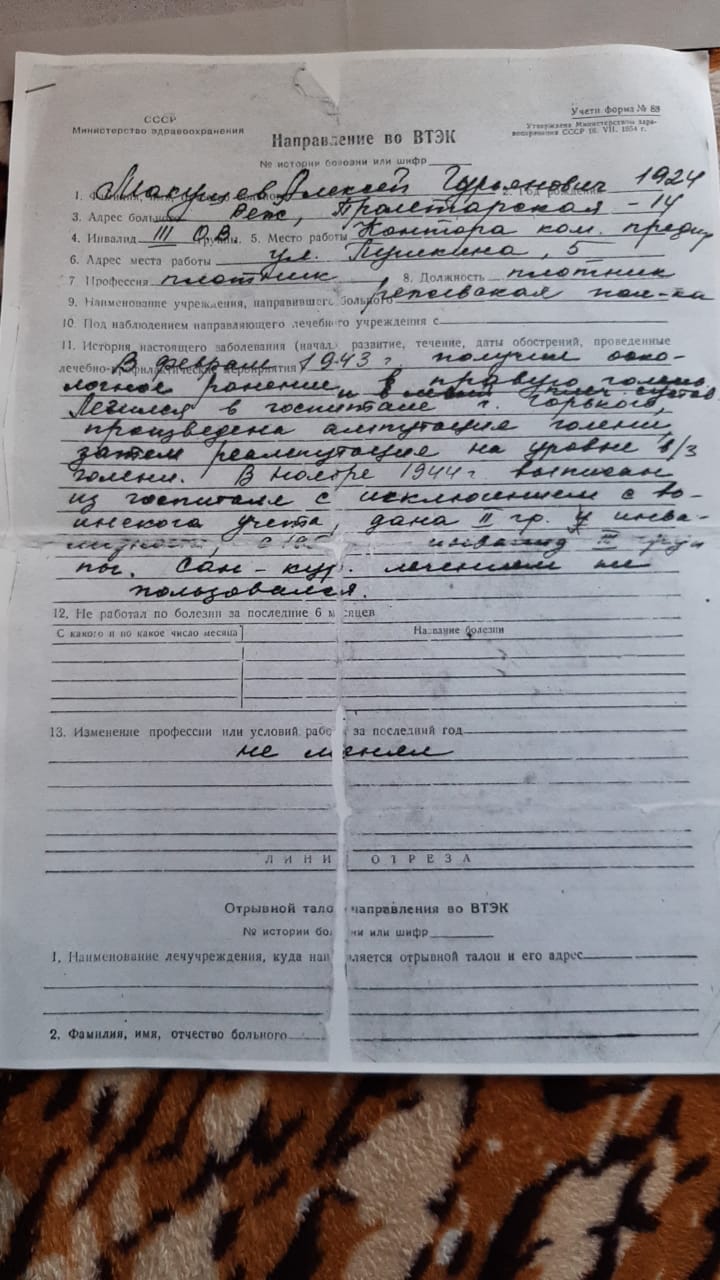 СССР
Министерство здравоохранения
Учетн. форма № 88
Утверждена Министерством здра-
воохранения СССР 16. VII. 1954 г.
Направление во ВТЭК
№ истории болезни или шифр
1. Алексей Гурьянович 2. Год рождения 1924
3. Адрес больного Пролетарская - 14
4. Инвалид III ОВ группы. 5. Место работы Контора ком. предпр
6. Адрес места работы ул. Пушкина, 5
7 Профессия плотник 8. Должность плотник
9. Наименование учреждения, направившего больного Репьевская пол-ка
10. Под наблюдением направляющего лечебного учреждения с
11. История настоящего заболевания (начало, развитие, течение, даты обострений, проведенные
лечебно-профилактические мероприятия В феврале 1943 г. получил оско-
лочное ранение в правую голень и
Лечился в госпитале г. Горького,
произведена ампутация голени,
затем реампутация на уровне в/з
голени. В ноябре 1944 г выписан
из госпиталя с исключением с во-
инского учета, дана II гр. инва-
лидности, с инвалид III груп
пы. Сан-кур. лечением не
пользовался.
12. Не работал по болезни за последние 6 месяцев
С какого и по какое число месяца
Название болезни
13. Изменение профессии или условий работы за последний год
не менял
ЛИНИЯ ОТРЕЗА
Отрывной талон направления во ВТЭК
№ истории болезни или шифр
1. Наименование лечучреждения, куда направляется отрывной талон и его адрес
2. Фамилия, имя, отчество больного